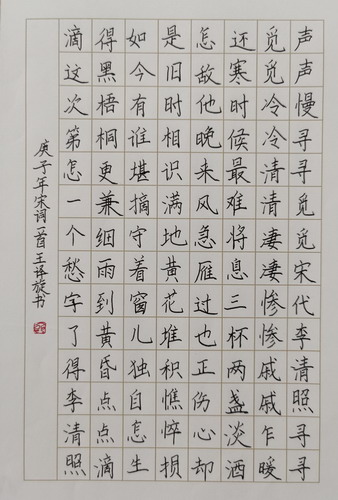 声声慢寻寻觅觅宋代李清照寻寻
觅觅冷冷清清凄凄惨惨戚戚乍暖
还寒时候最难将息三杯两盏淡酒
怎故他晚来风急雁过也正伤心却
是旧时相识满地黄花堆积憔悴损
如今有谁堪摘守着窗儿独自怎生
得黑梧桐更兼细雨到黄昏点点滴
滴这次第怎一个愁字了得李清照
庚子年宋词一首王译旋书